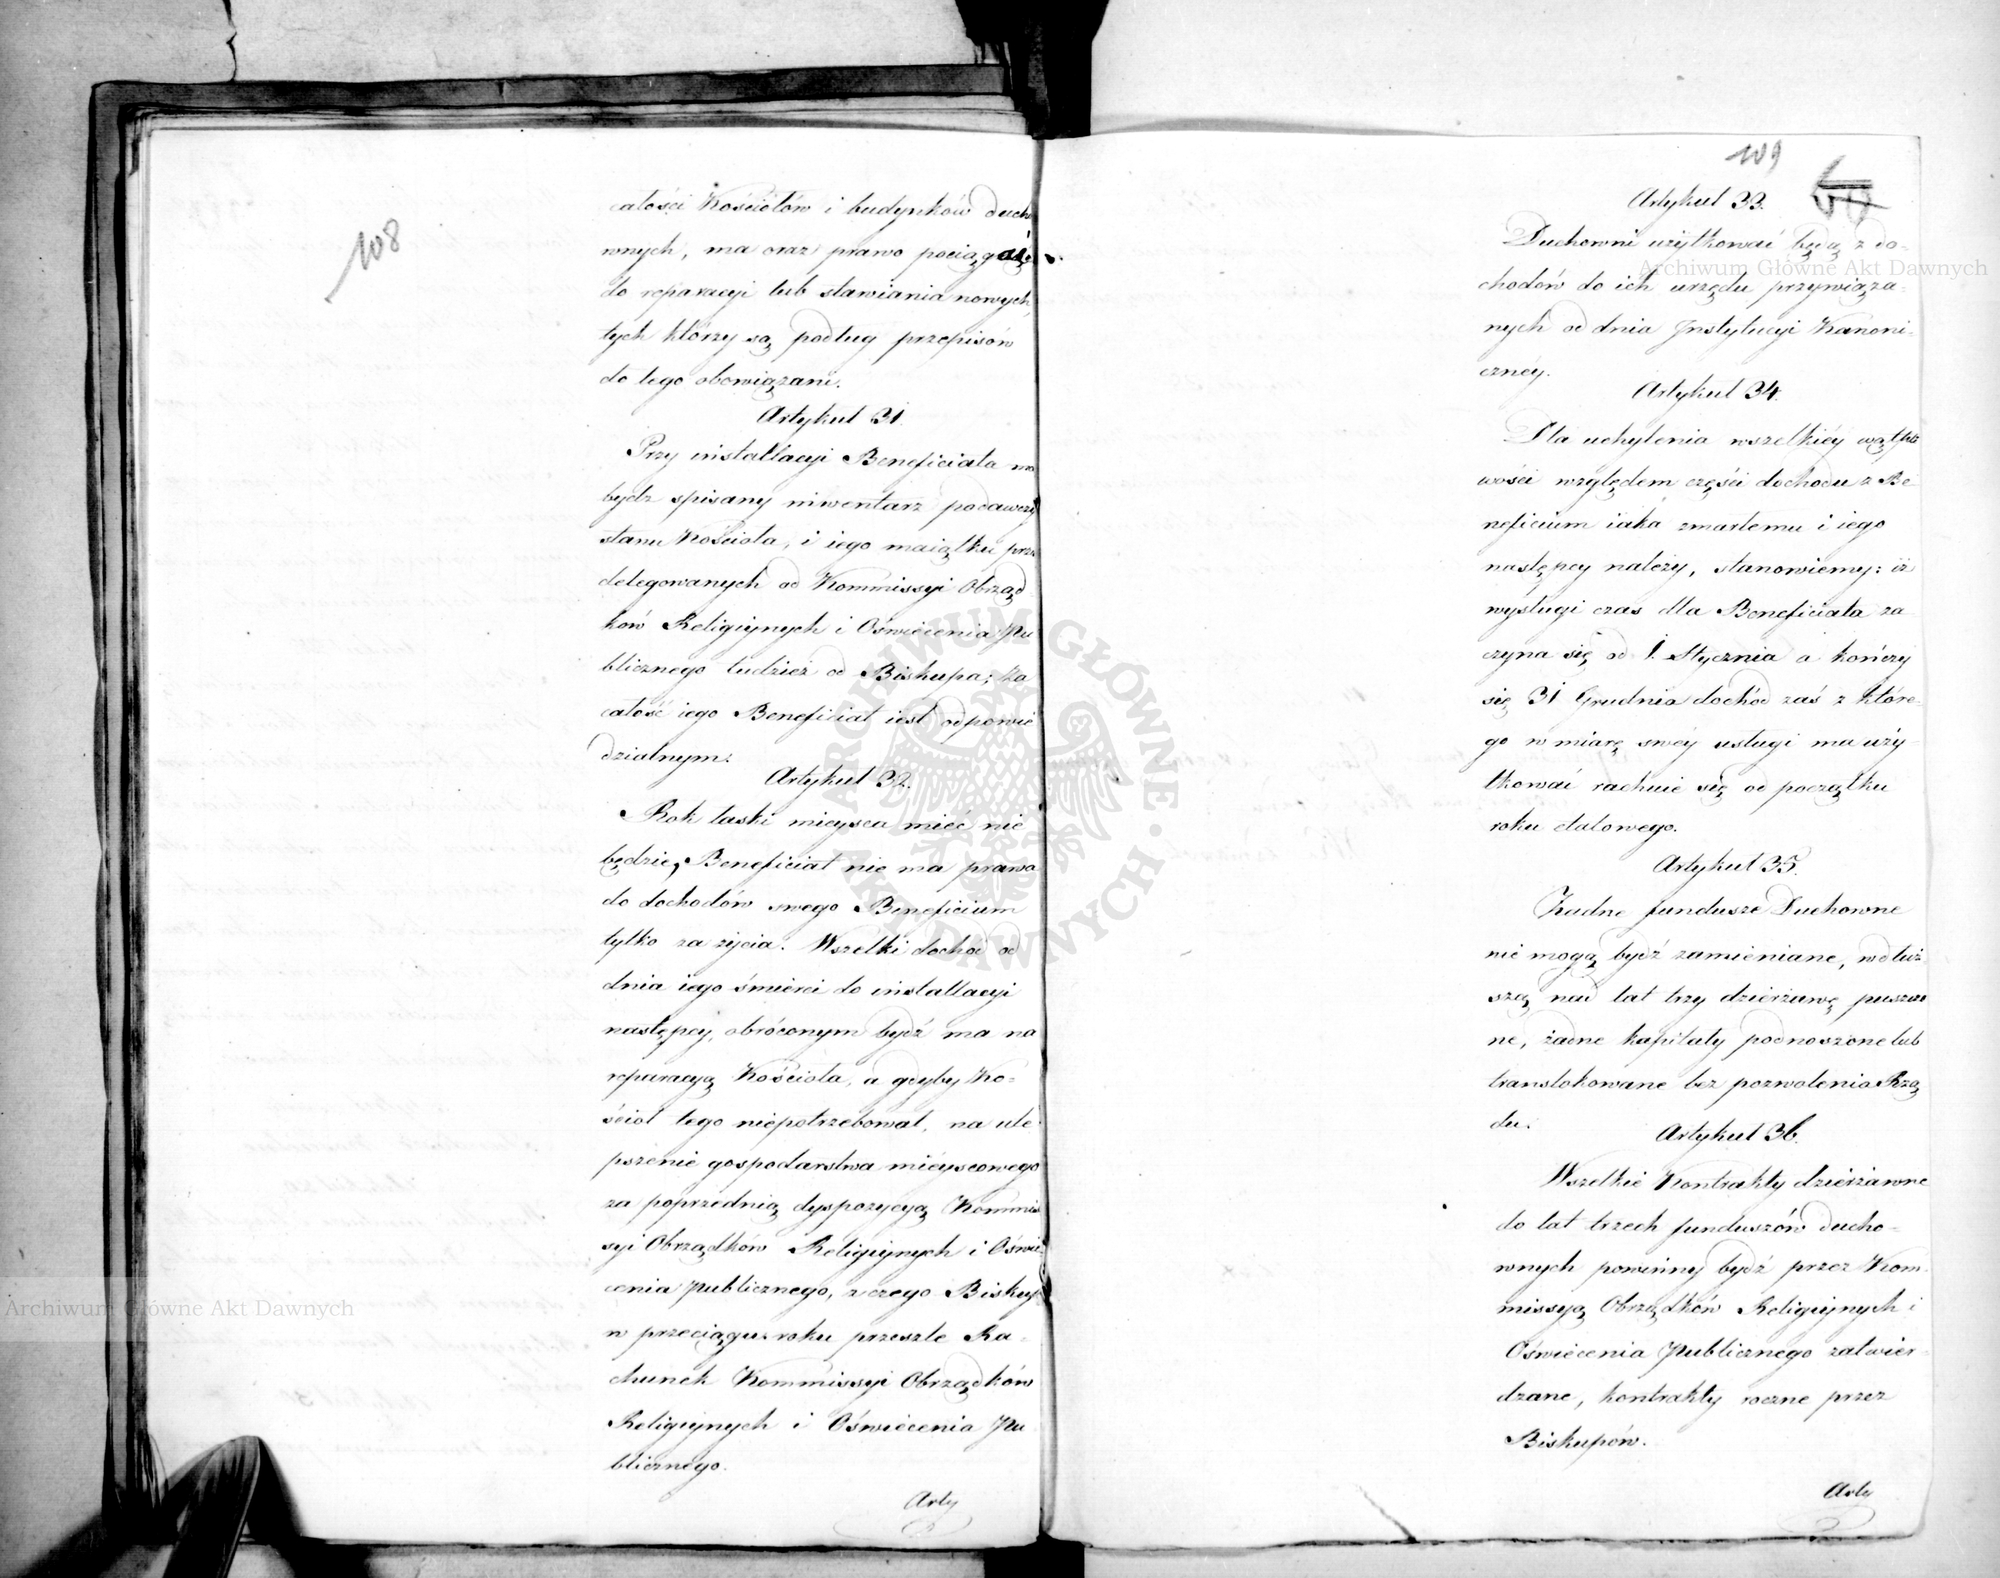 108
całości Kościołów i budynków ducho
wnych, ma oraz prawo pociągaić
do reparacyi lub stawiania nowych,
tych którzy są podług przepisów
do tego obowiązani.
Artykuł 31.
Przy installacyi Beneficiata ma
bydź spisany inwentarz podawczy
stanu Kościoła, i iego maiątku prze
delegowanych od Kommissyi Obrząd
ków Religiynych i Oświecenia Pu
blicznego tudzież od Biskupa; za
całość iego Beneficiat iest odpowie
dzialnym.
Artykuł 32.
Rok łaski mieysca mieć nie
będzie, Beneficiat nie ma prawa
do dochodów swego Beneficium
tylko za życia. Wszelki dochod od
dnia iego śmierci do installacyi
następcy, obróconym bydź ma na
reparacyą Kościoła, a gdyby Ko-
ściol tego niepotrzebował, na ule
pszenie gospodarstwa mieyscowego
za poprzednią dyspozycyą Kommis
syi Obrządków Religiynych i Oświe-
cenia Publicznego, z czego Biskup
w przeciągu roku prześle Ra-
chunek Kommissyi Obrządków
Religiynych i Oświecenia Pu
blicznego.
Arty
109
Artykuł 33.
Duchowni użytkować będą z do-
chodów do ich urzędu przywiąza-
nych od dnia Instytucyi Kanoni-
czney.
Artykuł 34.
Dla uchylenia wszelkiéy wątpli
wości względem części dochodu z Be
neficium iaka zmarłemu i iego
następcy należy, stanowiemy: iż
wysługi czas dla Beneficiata za
czyna się od 1. Stycznia a kończy
się 31 Grudnia dochód zaś z które-
go w miarę swéy usługi ma uży-
tkować rachuie się od początku
roku datowego.
Artykuł 35.
Żadne fundusze Duchowne
nie mogą bydź zamieniane, w dłuż-
szą nad lat trzy dzierżawę puszcza
ne, żadne kapitały podnoszone lub
translokowane bez pozwolenia Rzą
du.
Artykuł 36.
Wszelkie Kontrakty dzierżawne
do lat trzech funduszów ducho-
wnych powinny bydź przez Kom-
missyą Obrządków Religiynych i
Oświecenia Publicznego zatwier-
dzane, kontrakty roczne przez
Biskupów.
Arty
Archiwum Główne Akt Dawnych
Archiwum Główne Akt Dawnych
ARCHIWUM GŁÓWNE AKT DAWNYCH